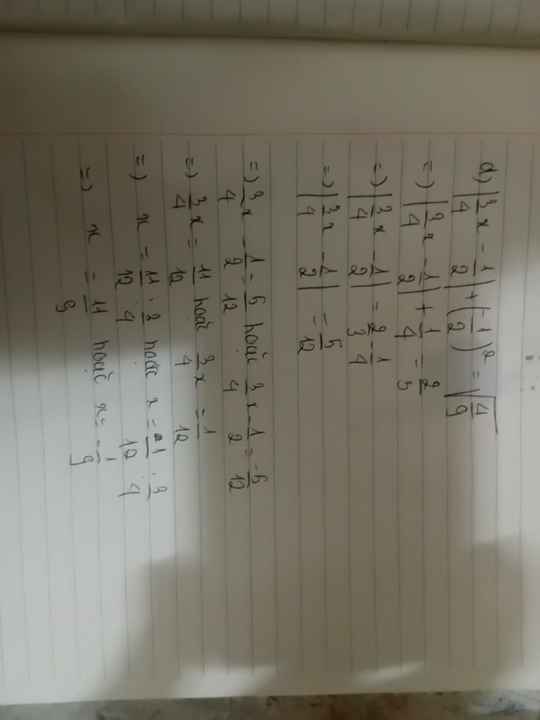 d) |3/4 x - 1/2| + (1/2)² = √(4/9)
=) |3/4 x - 1/2| + 1/4 = 2/5
=) |3/4 x - 1/2| = 2/3 - 1/4
=) |3/4 x - 1/2| = 5/12
=) 3/4 x - 1/2 = 5/12 hoặc 3/4 x - 1/2 = -5/12
=) 3/4 x = 11/12 hoặc 3/4 x = 1/12
=) x = 11/12 : 3/4 hoặc x = -1/12 : 3/4
=) x = 11/9 hoặc x = -1/9